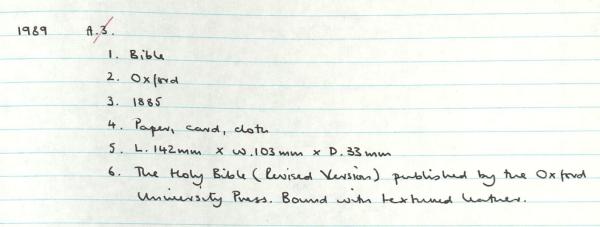 1989 A.3.
1. Bible
2. Oxford
3. 1885
4. Paper, card, cloth
5. L.142mm x W.103mm x D.33mm
6. The Holy Bible (Revised Version) published by the Oxford
University Press. Bound with textured leather.